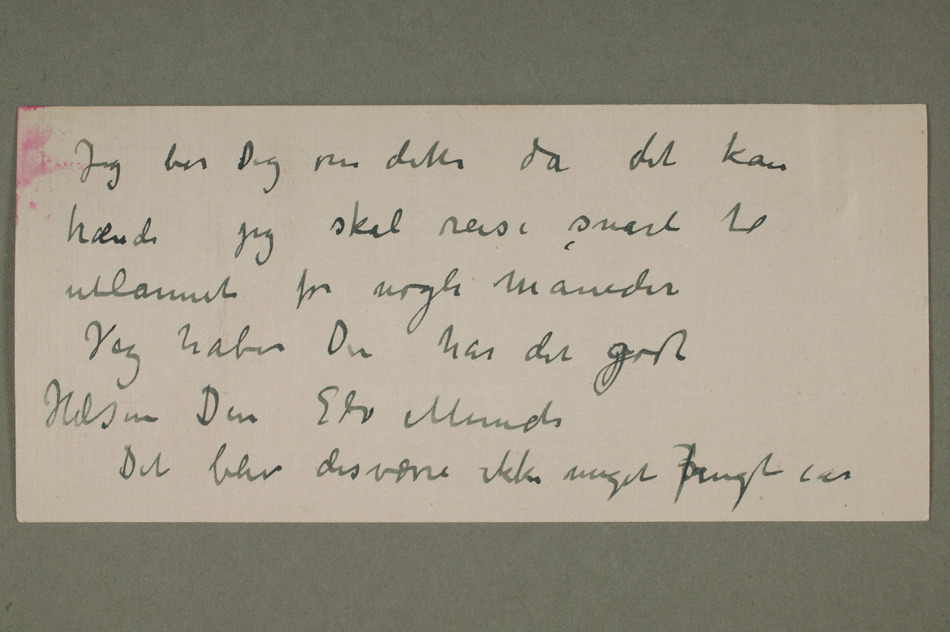 Jeg ber Dig om dette da det kan
hænde jeg skal reise snart til
utlannet for nogle Måneder
Jeg håber Du har det godt
Hilsen Din Edv Munch
Det blev desværre ikke meget frugt iår